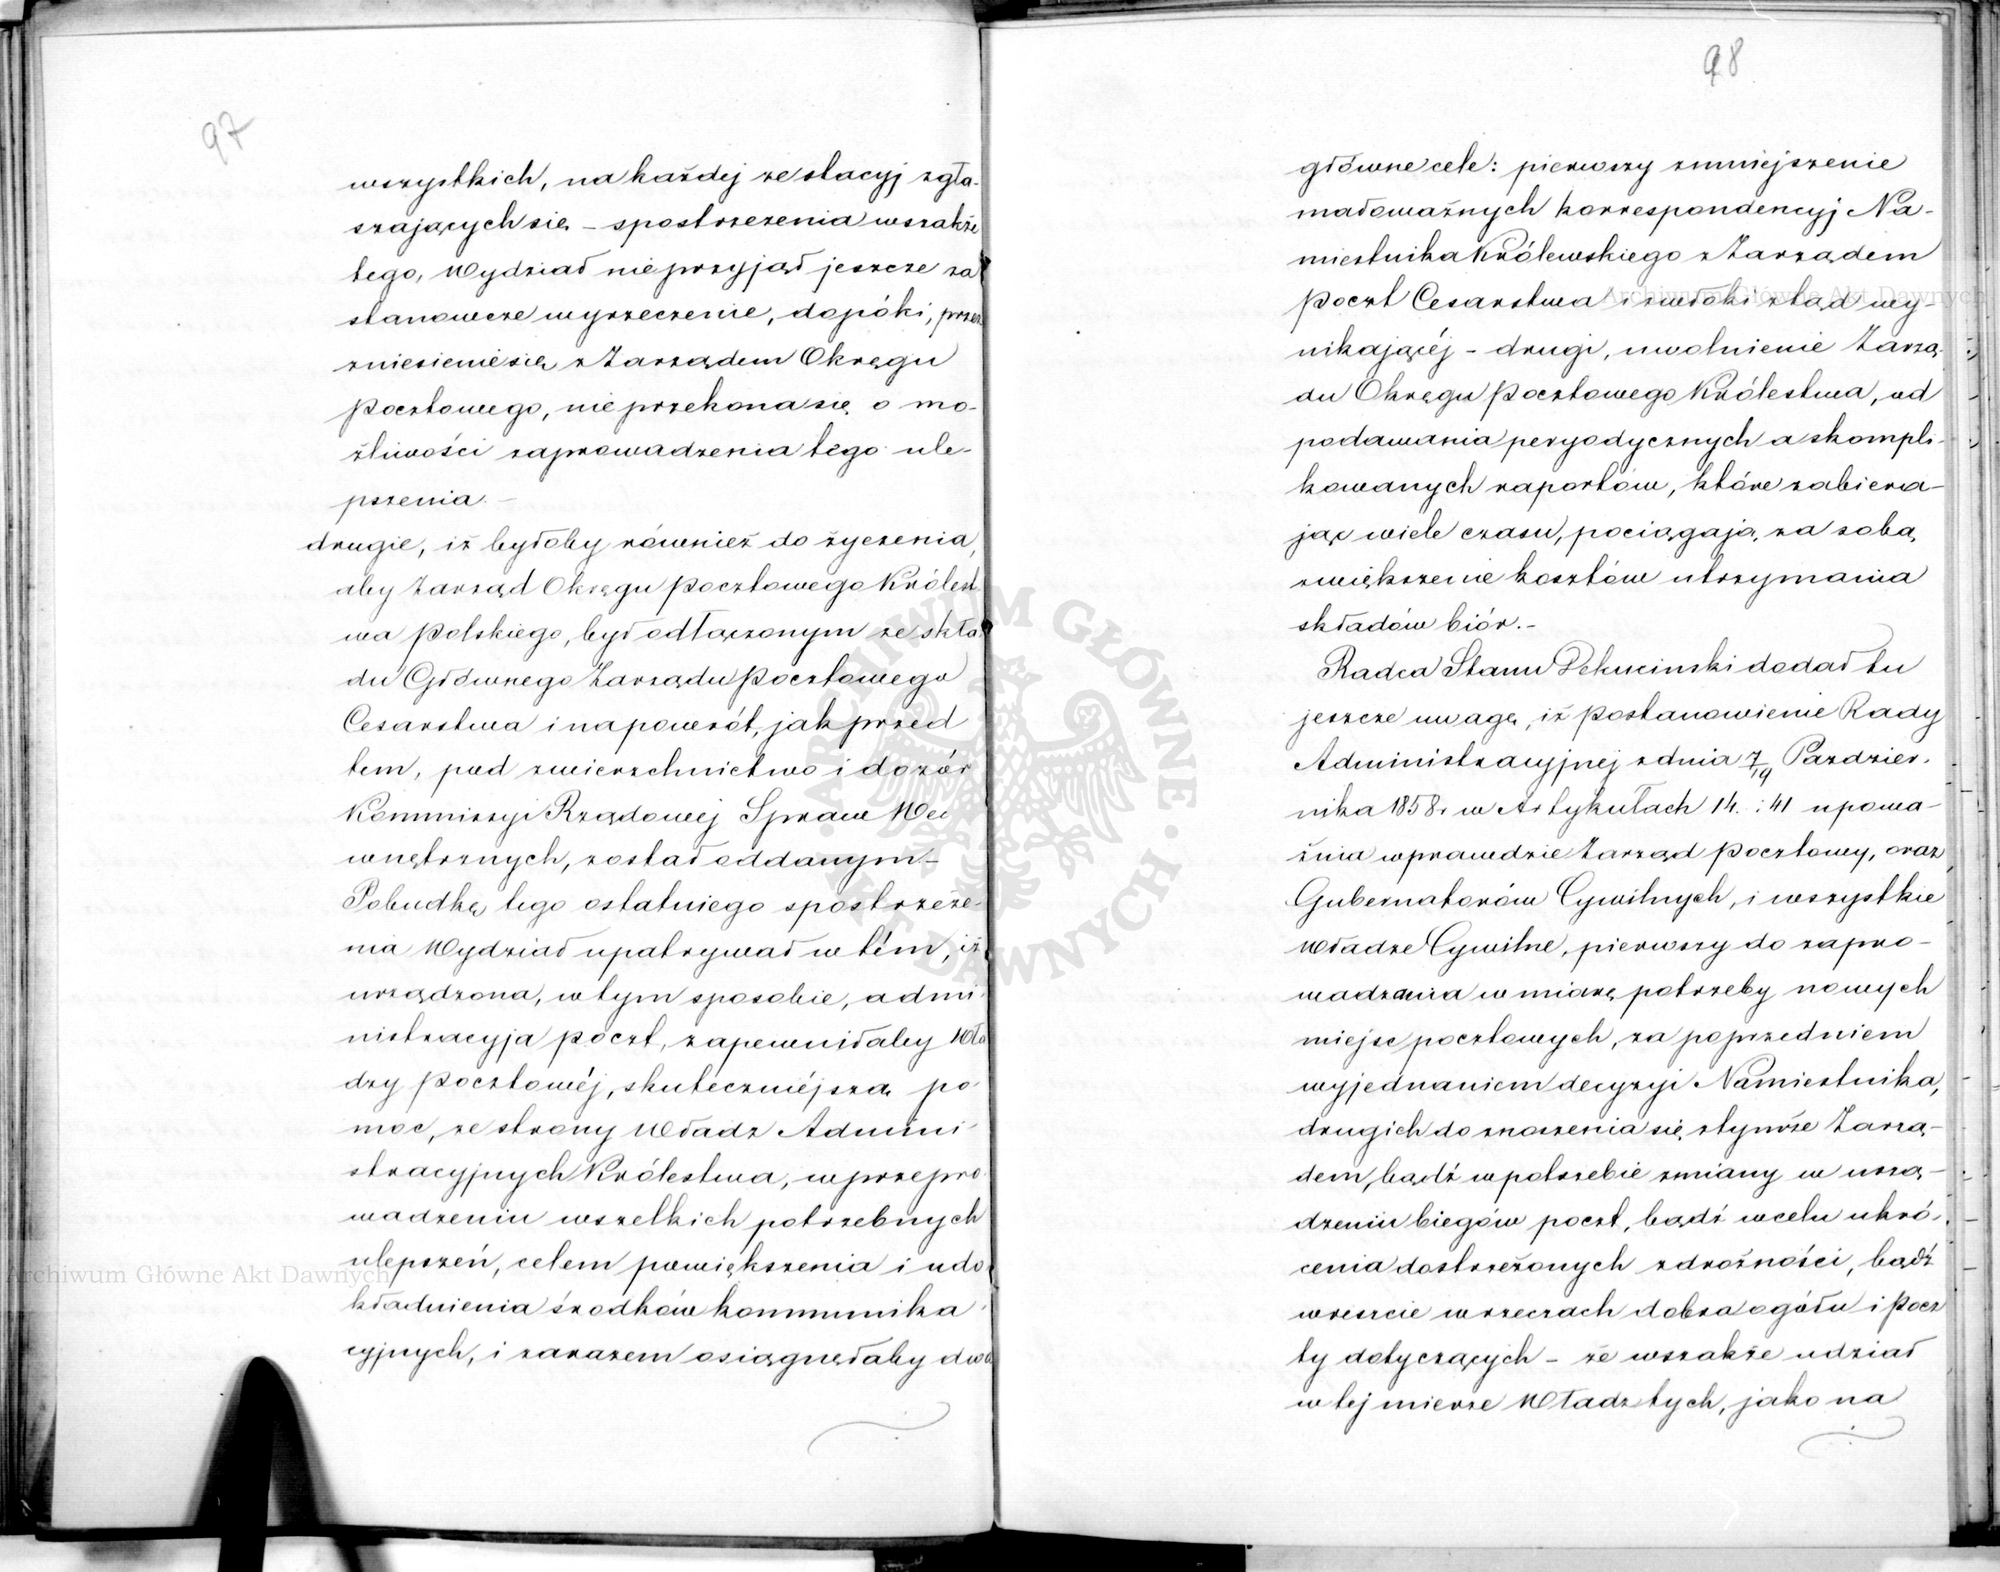 97
wszystkich, na każdej ze stacyj zgła-
szających się – spostrzezenia wszakże
tego, Wydział nie przyjął jeszcze za
stanowcze wyrzeczenie, dopóki, przez
zniesienie się z Zarządem Okręgu
Pocztowego, nie przekona się o mo-
żliwości zaprowadzenia tego ule-
pszenia. –
drugie, iż byłoby również do życzenia,
aby Zarząd Okręgu Pocztowego Królest
wa Polskiego, był odłączonym ze skła
du Głównego Zarządu Pocztowego
Cesarstwa i napowrót, jak przed
tem, pod zwierzchnictwo i dozór
Kommissyi Rządowej Spraw We
wnętrznych, został oddanym –
Pobudkę tego ostatniego spostrzeże-
nia Wydział upatrywał w tém, iż
urządzona, w tym sposobie, admi
nistracyja poczt, zapewniłaby Wła
dzy Pocztowéj, skuteczniéjszą po-
moc, ze strony Władz Admini-
stracyjnych Królestwa, w przepro
wadzeniu wszelkich potrzebnych
ulepszeń, celem powiększenia i udo
kładnienia środków kommunika
cyjnych, i zarazem osiągnęłaby dwa
98
główne cele: pierwszy zmniejszenie
małoważnych korrespondencyj Na-
miestnika Królewskiego z Zarządem
Poczt Cesarstwa i zwłoki ztąd wy-
nikającéj – drugi, uwolnienie Zarzą-
du Okręgu Pocztowego Królestwa, od
podawania peryodycznych a skompli-
kowanych raportów, które zabiera-
jąc wiele czasu, pociągają za sobą
zwiększenie kosztów utrzymania
składów biór. –
Radca Stanu Pekuciński dodał tu
jeszcze uwagę, iż Postanowienie Rady
Administracyjnej z dnia 7/19 Pazdzier-
nika 1858 r w Artykułach 14. i 41 upowa-
żnia wprawdzie Zarząd Pocztowy, oraz
Gubernatorów Cywilnych, i wszystkie
Władze Cywilne, pierwszy do zapro-
wadzania w miarę potrzeby nowych
miejsc pocztowych, za poprzedniem
wyjednaniem decyzyi Namiestnika,
drugich do znoszenia się z tymże Zarzą-
dem, bądź w potrzebie zmiany w urzą-
dzeniu biegów poczt, bądź w celu ukró-
cenia dostrzeżonych zdrożności, bądź
wreszcie w rzeczach dobra ogółu i Pocz
ty dotyczących – że wszakże udział
w tej mierze Władz tych, jako na
ARCHIWUM GŁÓWNE AKT DAWNYCH
Archiwum Główne Akt Dawnych
Archiwum Główne Akt Dawnych